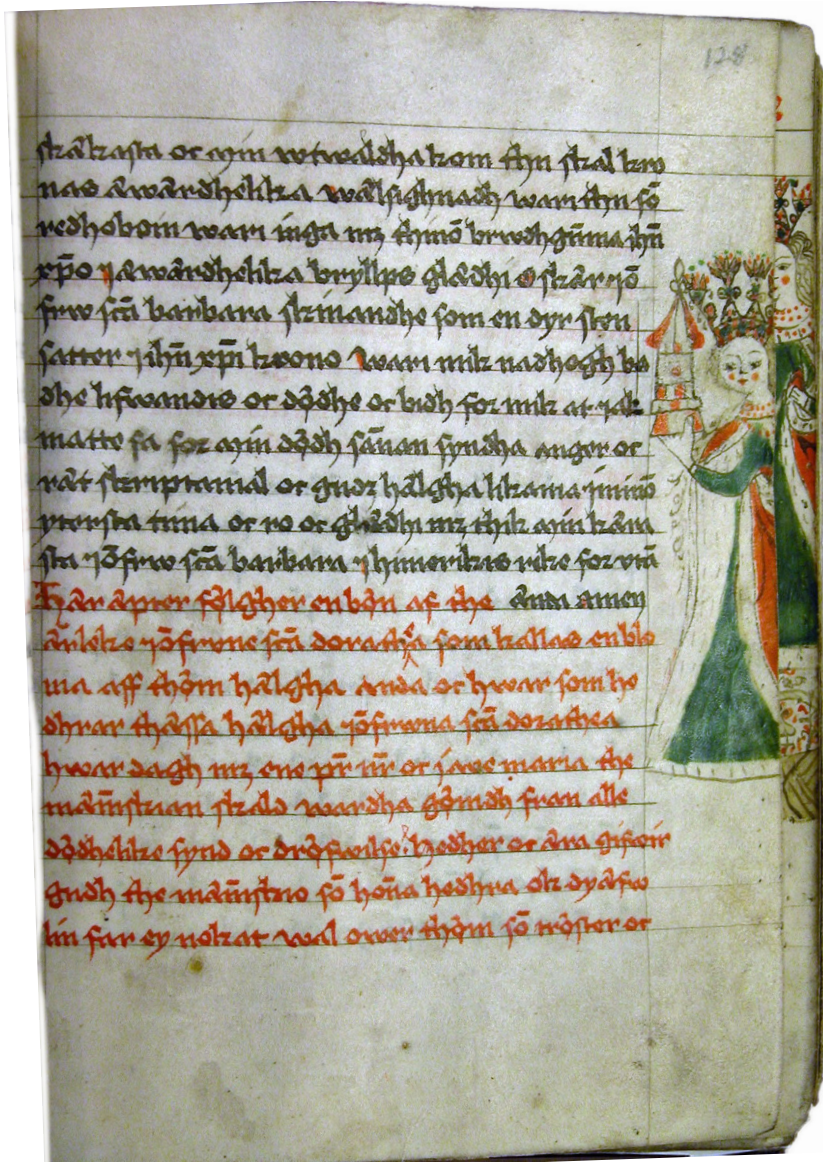 128
skærasta oc myn wtwaldha kom thu skal kro
nas æwærdhelika wælsighnadh wari thin fø̄
redhoboin wari inga mz thinō brwdhgūma ihū
xp̄o j æwærdhelika bryllps glædhi o skær jō
frw scā barbara skinandhe som en dyr sten
satter j ihū xp̄i krono wari mik nadhogh bø
dhe lifwandis oc dødhe oc bidh for mik at jak
matte fa for myn dødh sānan syndha anger oc
ræt skriptamal oc gudz hælgha likama j minō
ytersta tima oc ro oc glædhi mz thik myn kæra
sta jōfrw scā barbara j himerikis rike for vtā
ænda amen
Hær æpter følgher en bøn af the
ærleke jōfrwne scā dorathea som kallas en blo
ma aff thøm hælgha anda oc hwar som he
dhrar thæssa hælgha jōfrwna scā dorathea
hwar dagh mz ene pr̄ nr̄ oc j ave maria the
mæn̄iskian skal wardha gømdh fran alle
dødhelike synd oc drøfwilse hedher oc æra gifwir
gudh the mæn̄iskio sō hōna hedhra ok dyæfw
lin far ey nokat wal ower thøm sō trøster oc